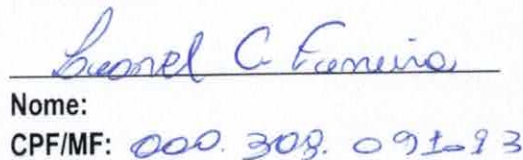 Leonel C. Ferreira
Nome:
CPF/MF: 000. 308. 091-93